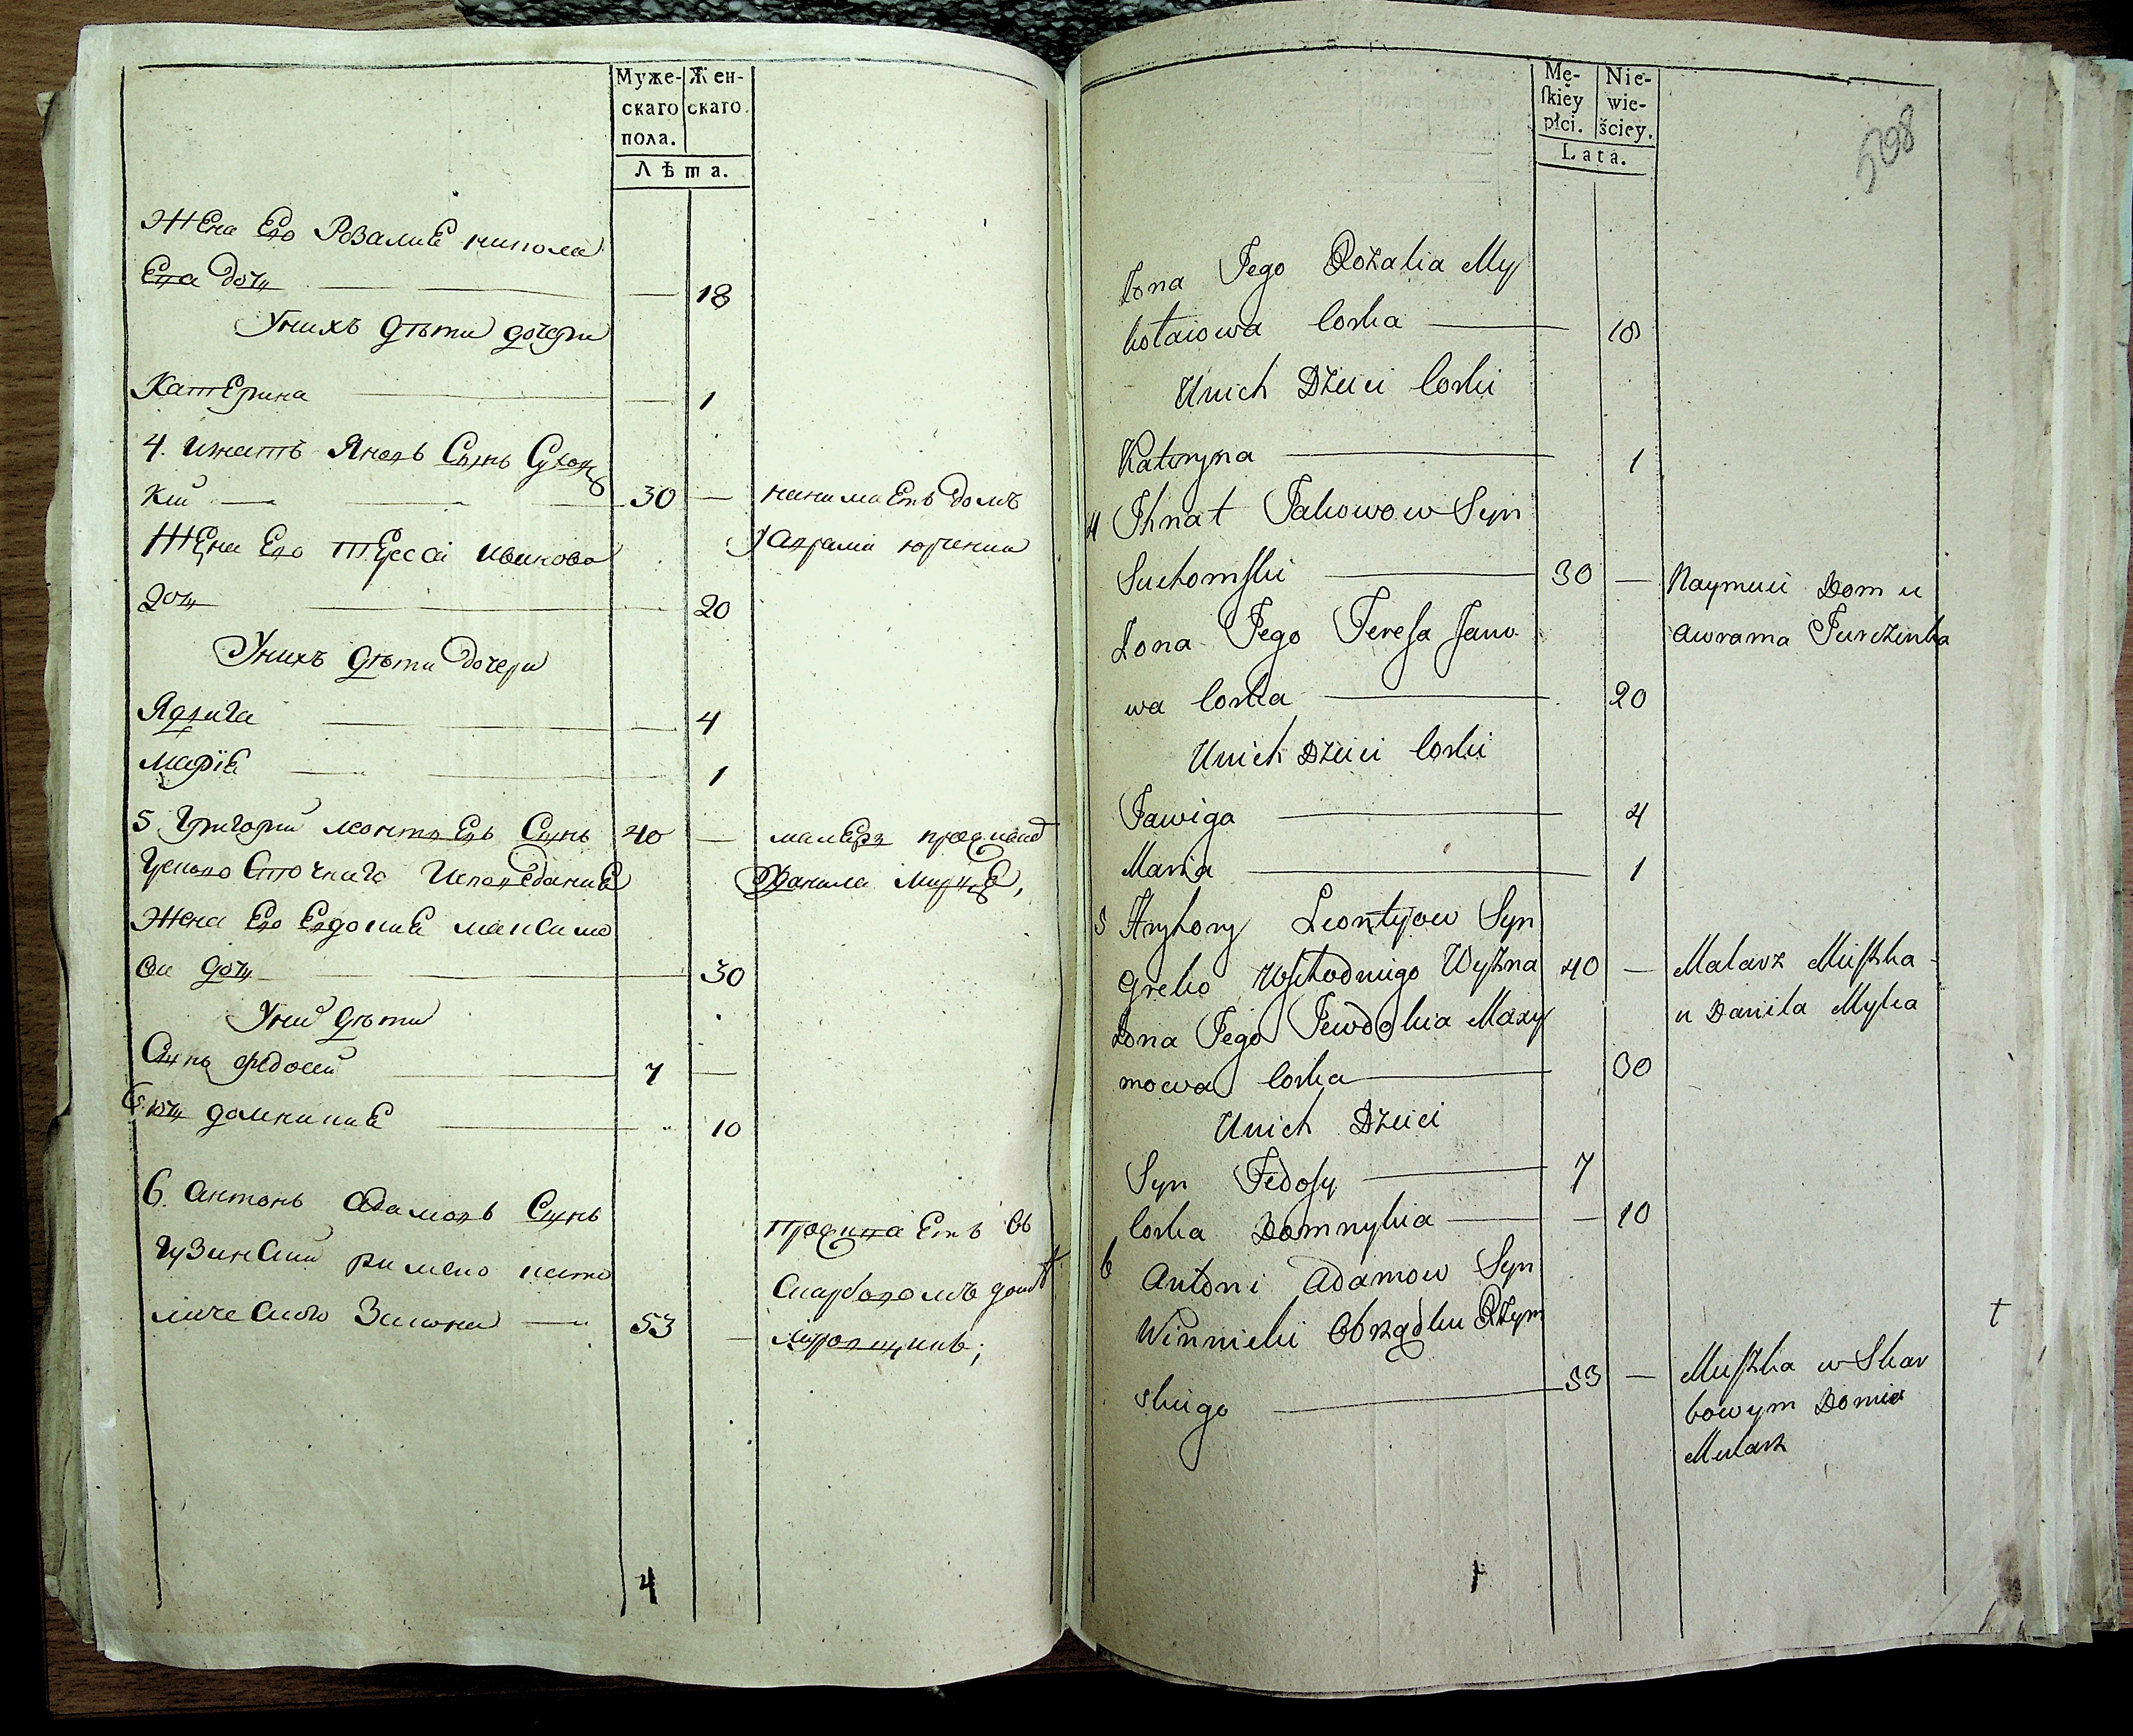 Муже-
скаго
пола.
Жен-
скаго.
Лѣта.
Жена Его Розалиѣ никола
Ева дочь 18
Унихъ дѣти дочери
Катерина 1
4. игнатъ Яковъ Сынъ
Кий 30 — нанимаетъ домъ
Жена Его Тереса иванова
дочь 20
Унихъ дѣти дочери
Ядвига 4
Мария 1
5 Григорий леонтьевъ Сынъ 40 —
Греко Сточнаго Исповеданиѣ
Данила
Жена Его Евдокиѣ максимо
ва дочь 30
Уних дѣти
Сынъ федосий 7 —
дочь домникиѣ 10
6. антонъ адамовъ Сынъ
римско като
лического Закона 53 —
4
Mę-
ſkiéy
płci.
Nie-
wie-
ściey.
Lata.
508
Żona Jego Rozalia My
kołaiowa Corka 18
Unich Dzieci Corki
Kateryna 1
4 Ihnat Jakowow Syn
Suchomſki 30 — Naymuii Dom u
awrama Jurczenka
Żona Jego Tereſa Jano
wa Corka 20
Unich Dzieci Corki
Jawiga 4
Maria 1
5 Hryhory Leontyow Syn
Greko Wſchodnigo Wyzna 40 — Malarz Miſzka
u Daniła Myka
Żona Jego Jewdokia Maxy
mowa Corka 30
Unich Dzieci
Syn Fedoſy 7
Corka Domnykia — 10
6 Antoni Adamow Syn
Winnicki Obrządku Rzym
skiigo 53 — Miſzka w Skar
bowym Domie
Mularz